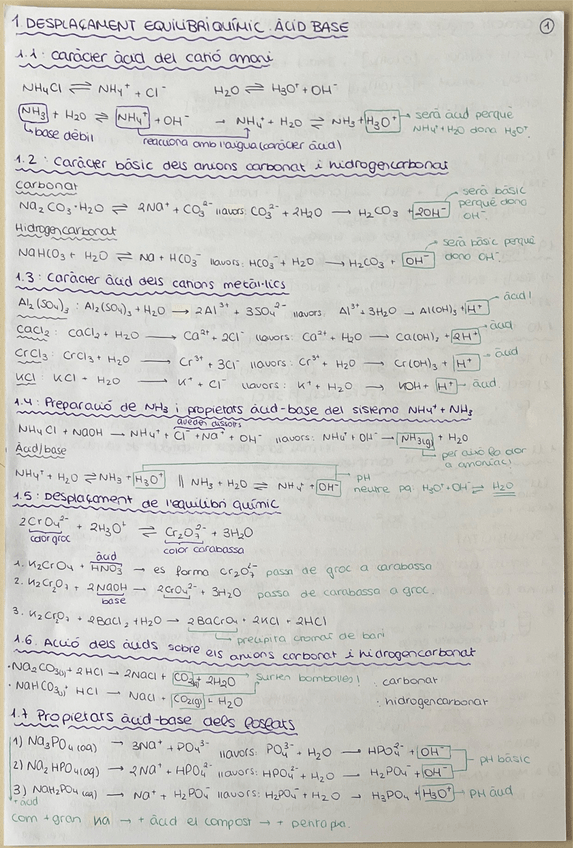 1. DESPLAÇAMENT EQUILIBRI QUÍMIC. ÀCID BASE
1
1.1: Caràcter àcid del catió amoni
NH4Cl ⇌ NH4⁺ + Cl⁻ H2O ⇌ H3O⁺ + OH⁻
NH3 + H2O ⇌ NH4⁺ + OH⁻ → NH4⁺ + H2O ⇌ NH3 + H3O⁺ → serà àcid perquè
NH4⁺ + H2O dona H3O⁺.
base dèbil
reacciona amb l'aigua (caràcter àcid)
1.2: Caràcter bàsic dels anions carbonat i hidrogencarbonat
carbonat
Na2CO3·H2O ⇌ 2Na⁺ + CO3²⁻ llavors: CO3²⁻ + 2H2O → H2CO3 + 2OH⁻
serà bàsic
perquè dona
OH⁻.
Hidrogencarbonat
NaHCO3 + H2O ⇌ Na + HCO3⁻ llavors: HCO3⁻ + H2O → H2CO3 + OH⁻
serà bàsic perquè
dono OH⁻.
1.3: Caràcter àcid dels cations metàl·lics
Al2(SO4)3: Al2(SO4)3 + H2O → 2Al³⁺ + 3SO4²⁻ llavors Al³⁺ + 3H2O → Al(OH)3 + H⁺ àcid!
CaCl2: CaCl2 + H2O → Ca²⁺ + 2Cl⁻ llavors: Ca²⁺ + H2O → Ca(OH)2 + 2H⁺ àcid
CrCl3: CrCl3 + H2O → Cr³⁺ + 3Cl⁻ llavors: Cr³⁺ + H2O → Cr(OH)3 + H⁺ àcid
KCl: KCl + H2O → K⁺ + Cl⁻ llavors: K⁺ + H2O → KOH + H⁺ àcid
1.4: Preparació de NH3 i propietats àcid-base del sistema NH4⁺ + NH3
queden dissolts
NH4Cl + NaOH → NH4⁺ + Cl⁻ + Na⁺ + OH⁻ llavors: NH4⁺ + OH⁻ → NH3(g) + H2O
Àcid/base
per això fa olor
a amoníac!
NH4⁺ + H2O ⇌ NH3 + H3O⁺ || NH3 + H2O ⇌ NH4⁺ + OH⁻
pH
neutre pq H3O⁺ + OH⁻ ⇌ H2O
1.5: Desplaçament de l'equilibri químic
2CrO4²⁻ + 2H3O⁺ ⇌ Cr2O7²⁻ + 3H2O
color groc
color carabassa
àcid
1. K2CrO4 + HNO3 → es forma Cr2O7²⁻ passa de groc a carabassa
2. K2Cr2O7 + 2NaOH → 2CrO4²⁻ + 3H2O passa de carabassa a groc.
base
3. K2Cr2O7 + 2BaCl2 + H2O → 2BaCrO4 + 2KCl + 2HCl
precipita cromat de bari
1.6. Acció dels àcids sobre els anions carbonat i hidrogencarbonat
· Na2CO3(s) + 2HCl → 2NaCl + CO2(g) + 2H2O surten bombolles! : carbonat
· NaHCO3(s) + HCl → NaCl + CO2(g) + H2O : hidrogencarbonat
1.7 Propietats àcid-base dels fosfats
1) Na3PO4(aq) → 3Na⁺ + PO4³⁻ llavors: PO4³⁻ + H2O → HPO4²⁻ + OH⁻
pH bàsic
2) Na2HPO4(aq) → 2Na⁺ + HPO4²⁻ llavors: HPO4²⁻ + H2O → H2PO4⁻ + OH⁻
3) NaH2PO4(aq) → Na⁺ + H2PO4⁻ llavors: H2PO4⁻ + H2O → H3PO4 + H3O⁺ pH àcid
+ àcid
com + gran → + àcid el compost → + petit pKa.